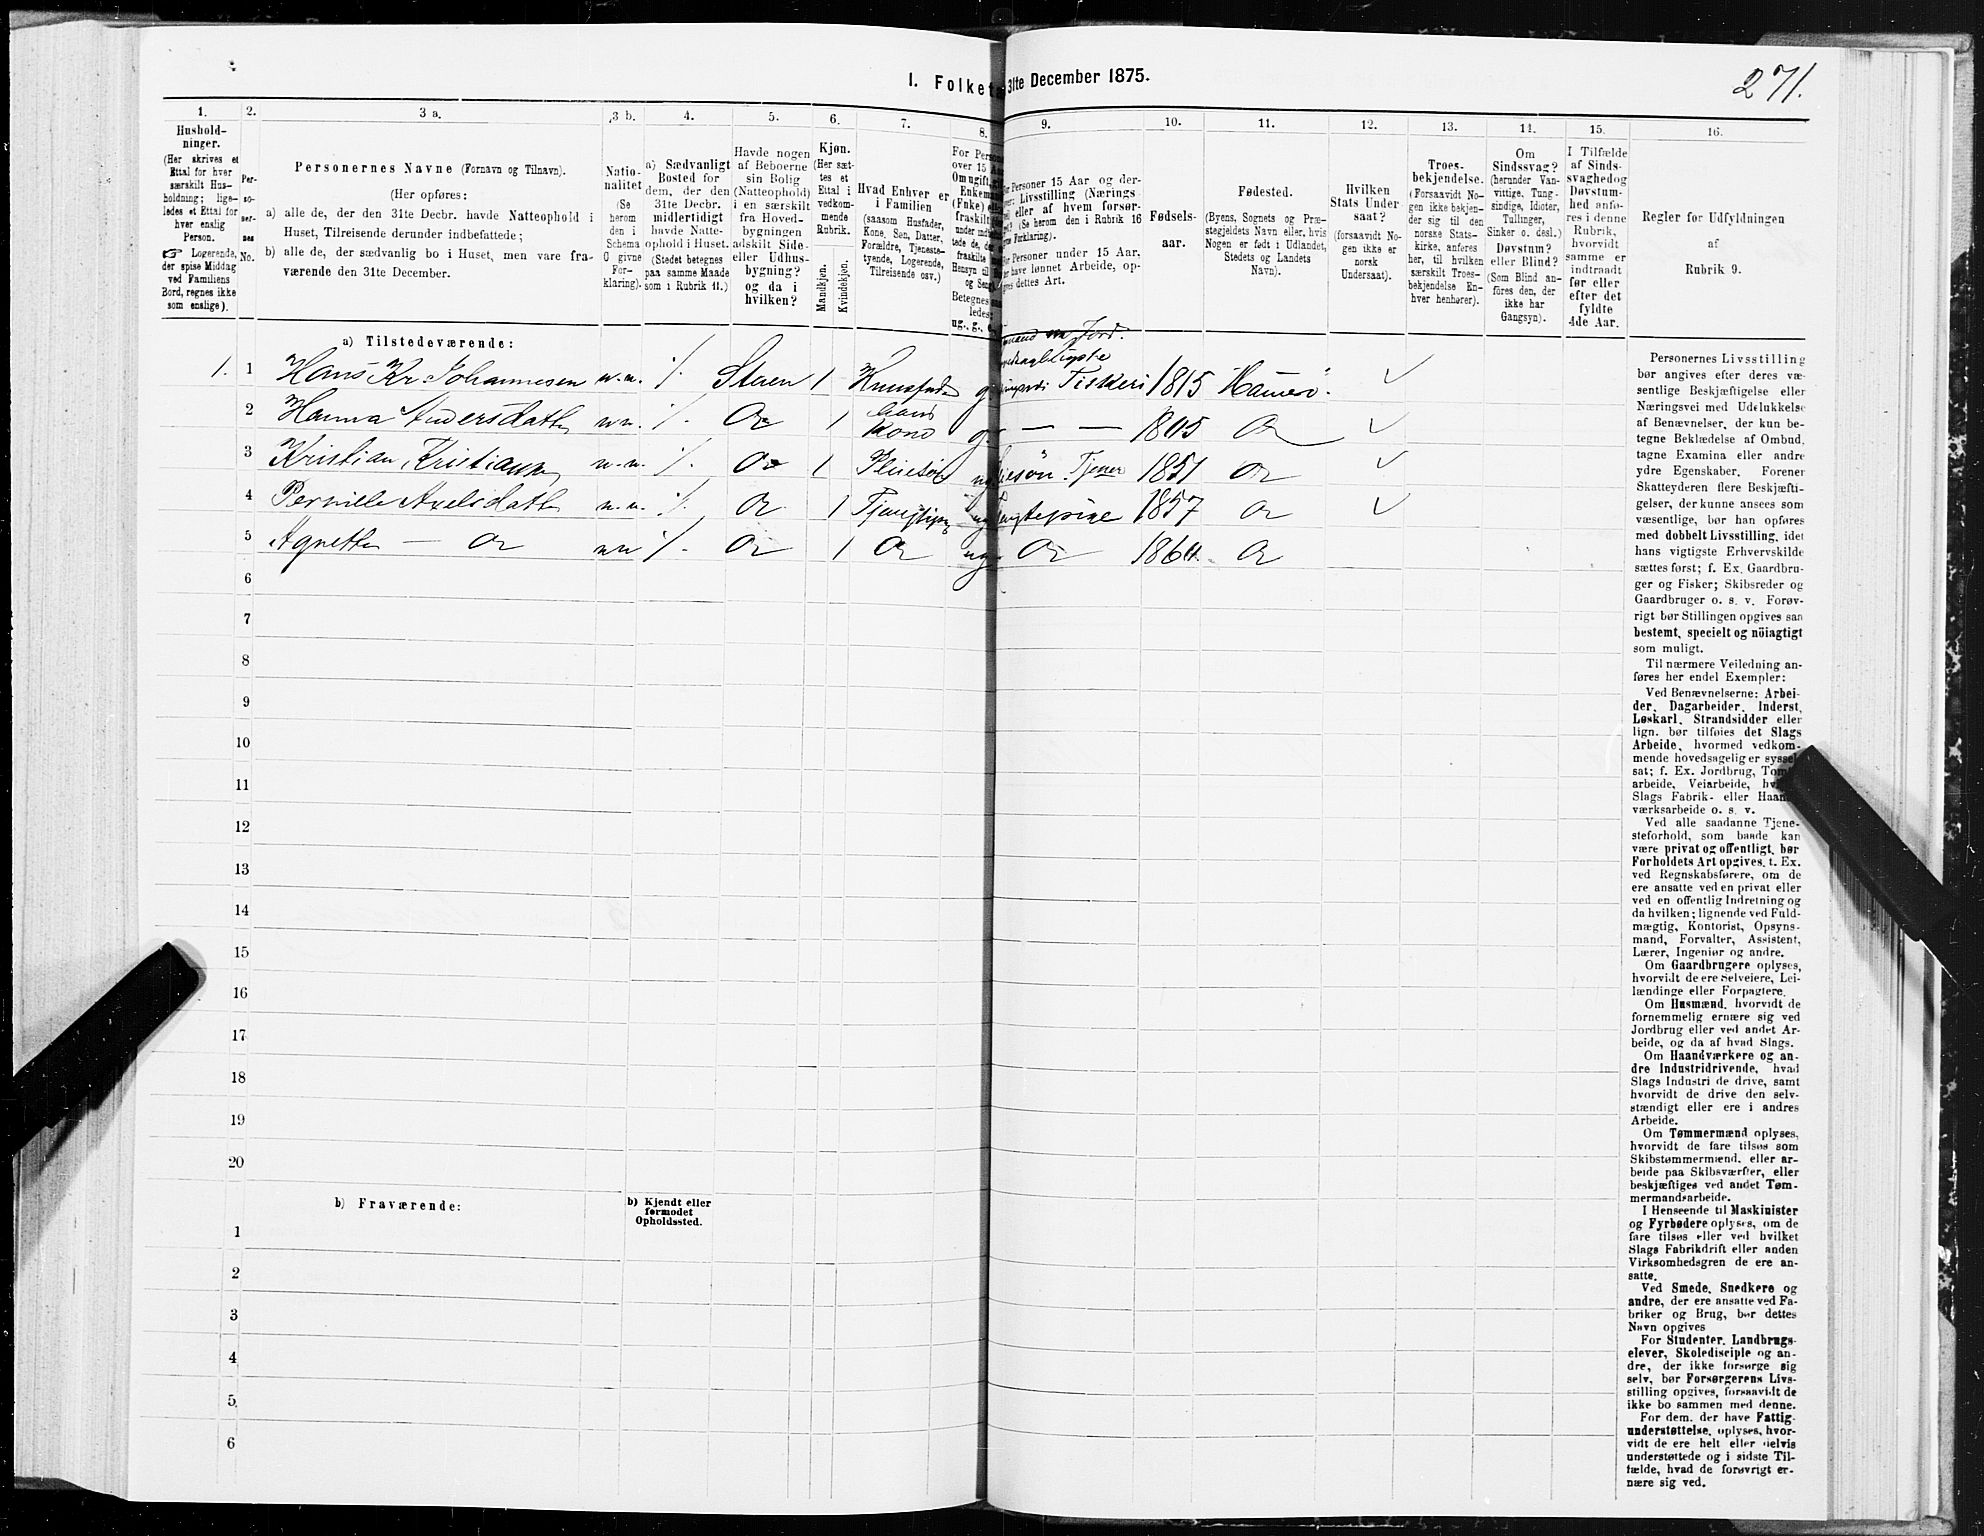 I. Folket 31te December 1875.
271.
1. 2. 3 a. 3 b. 4. 5. 6. 7. 8. 9. 10. 11. 12. 13. 14. 15. 16.
Hushold-
ninger.
(Her skrives et
Ettal for hver
særskilt Hus-
holdning; lige-
ledes et Ettal for
hver enslig
Person.
☞ Logerende,
der spise Middag
ved Familiens
Bord, regnes ikke
som enslige).
Per-
so-
ner-
nes
No.
Personernes Navne (Fornavn og Tilnavn).
(Her opføres:
a) alle de, der den 31te Decbr. havde Natteophold i
Huset, Tilreisende derunder indbefattede;
b) alle de, der sædvanlig bo i Huset, men vare fra-
værende den 31te December.
Natio-
nalitet
(Se
herom
den i
Schema
O givne
For-
klaring).
a) Sædvanligt
Bosted for
dem, der den
31te Decbr.
midlertidigt
havde Natte-
ophold i Huset.
(Stedet betegnes
paa samme Maade
som i Rubrik 11.)
Havde nogen
af Beboerne
sin Bolig
(Natteophold)
i en særskilt
fra Hoved-
bygningen
adskilt Side-
eller Udhus-
bygning?
og da i
hvilken?
Kjøn.
(Her sæt-
tes et
Ettal i
vedkom-
mende
Rubrik.
Mandkjøn.
Kvindekjøn.
Hvad Enhver er
i Familien
(saasom Husfader,
Kone, Søn, Datter,
Forældre, Tjeneste-
tyende, Logerende,
Tilreisende osv.)
For Person
over 15 Aar
Om ugift,
Enkema
(Fnke) elle
fraskilt
Betegnes
ledes:
ug., g.,
For Personer 15 Aar og der-
Livsstilling (Nærings
eller af hvem forsør-
(Se herom den i Rubrik 16
Forklaring).
Personer under 15 Aar,
have lønnet Arbeide, op-
dettes Art.
Fødsels-
aar.
Fødested.
(Byens, Sognets og Præ-
stegjeldets Navn eller, hvis
Nogen er født i Udlandet,
Stedets og Landets
Navn).
Hvilken
Stats Under
saat?
(forsaavidt No-
gen ikke er
norsk
Undersaat).
Troes-
bekjendelse.
(Forsaavidt No-
gen ikke bekjen-
der sig til den
norske Stats-
kirke, anføres
her, til hvilken
særskilt Troes-
bekjendelse En-
hver henhører).
Om
Sindssvag?
(herunder Van-
vittige, Tung-
sindige, Idioter,
Tullinger,
Sinker o. desl.)
Døvstum?
eller Blind?
(Som Blind an-
føres den, der
ikke har
Gangsyn).
I Tilfælde
af Sinds-
svaghed og
Døvstum-
hed anfø-
res i denne
Rubrik,
hvorvidt
samme er
indtraadt
før eller
efter det
fyldte
4de Aar.
Regler før Udfyldningen
af
Rubrik 9.
a) Tilstedeværende:
1. 1 Hans Kr. Johannesen n.n. /. 1 Fiskeri 1815 ✓
2 Hanna Andersdatter n.n. /. Do 1 Kone g. — — 1805 Do ✓
3 Kristian Kristiansen n.n. /. Do 1 Pleiesøn Tjener 1851 Do ✓
4 Pernille Axelsdatter n.n. /. Do 1 1857 Do ✓
5 — Do n.n /. Do 1 Do ug. Do Do
6
7
8
9
10
11
12
13
14
15
16
17
18
19
20
b) Fraværende:
b) Kjendt eller
formodet
Opholdssted.
1
2
3
4
5
6
Personernes Livsstilling
bør angives efter deres væ-
sentlige Beskjæftigelse eller
Næringsvei med Udelukkelse
af Benævnelser, der kun be-
tegne Beklædelse af Ombud,
tagne Examina eller andre
ydre Egenskaber. Forener
Skatteyderen flere Beskjæfti-
gelser, der kunne ansees som
væsentlige, bør han opføres
med dobbelt Livsstilling, idet
hans vigtigste Erhvervskilde
sættes først; f. Ex. Gaardbru-
ger og Fisker; Skibsreder og
Gaardbruger o. s. v. Forøv-
rigt bør Stillingen opgives saa
bestemt, specielt og nöiagtigt
som muligt.
Til nærmere Veiledning an-
føres her endel Exempler:
Ved Benævnelserne: Arbei-
der, Dagarbeider, Inderst,
Løskarl, Strandsidder eller
lign. bør tilføies det Slags
Arbeide, hvormed vedkom-
mende hovedsagelig er syssel-
sat; f. Ex. Jordbrug, Tom
arbeide, Veiarbeide, hv
Slags Fabrik- eller Haand-
værksarbeide o. s. v.
Ved alle saadanne Tjene-
steforhold, som baade kan
være privat og offentligt, bør
Forholdets Art opgives, t. Ex.
ved Regnskabsførere, om de
ere ansatte ved en privat eller
ved en offentlig Indretning og
da hvilken; lignende ved Fuld-
mægtig, Kontorist, Opsyns-
mand, Forvalter, Assistent,
Lærer, Ingeniør og andre.
Om Gaardbrugere oplyses,
hvorvidt de ere Selveiere, Lei-
lændinge eller Forpagtere.
Om Husmænd, hvorvidt de
fornemmelig ernære sig ved
Jordbrug eller ved andet Ar-
beide, og da af hvad Slags.
Om Haandværkere og an-
dre Industridrivende, hvad
Slags Industri de drive, samt
hvorvidt de drive den selv-
stændigt eller ere i andres
Arbeide.
Om Tømmermænd oplyses,
hvorvidt de fare tilsøs som
Skibstømmermænd, eller ar-
beide paa Skibsværfter, eller
beskjæftiges ved andet Tøm-
mermandsarbeide.
I Henseende til Maskinister
og Fyrbødere oplyses, om de
fare tilsøs eller ved hvilket
Slags Fabrikdrift eller anden
Virksomhedsgren de ere an-
satte.
Ved Smede, Snedkere og
andre, der ere ansatte ved Fa-
briker og Brug, bør dettes
Navn opgives
For Studenter, Landbrugs-
elever, Skoledisciple og an-
dre, der ikke forsørge sig
selv, bør Forsørgerens Livs-
stilling opgives, forsaavidt de
ikke bo sammen med denne.
For dem, der have Fattig-
understøttelse, oplyses, hvor-
vidt de ere helt eller delvis
understøttede og i sidste Til-
fælde, hvad de forøvrigt er-
nære sig ved.